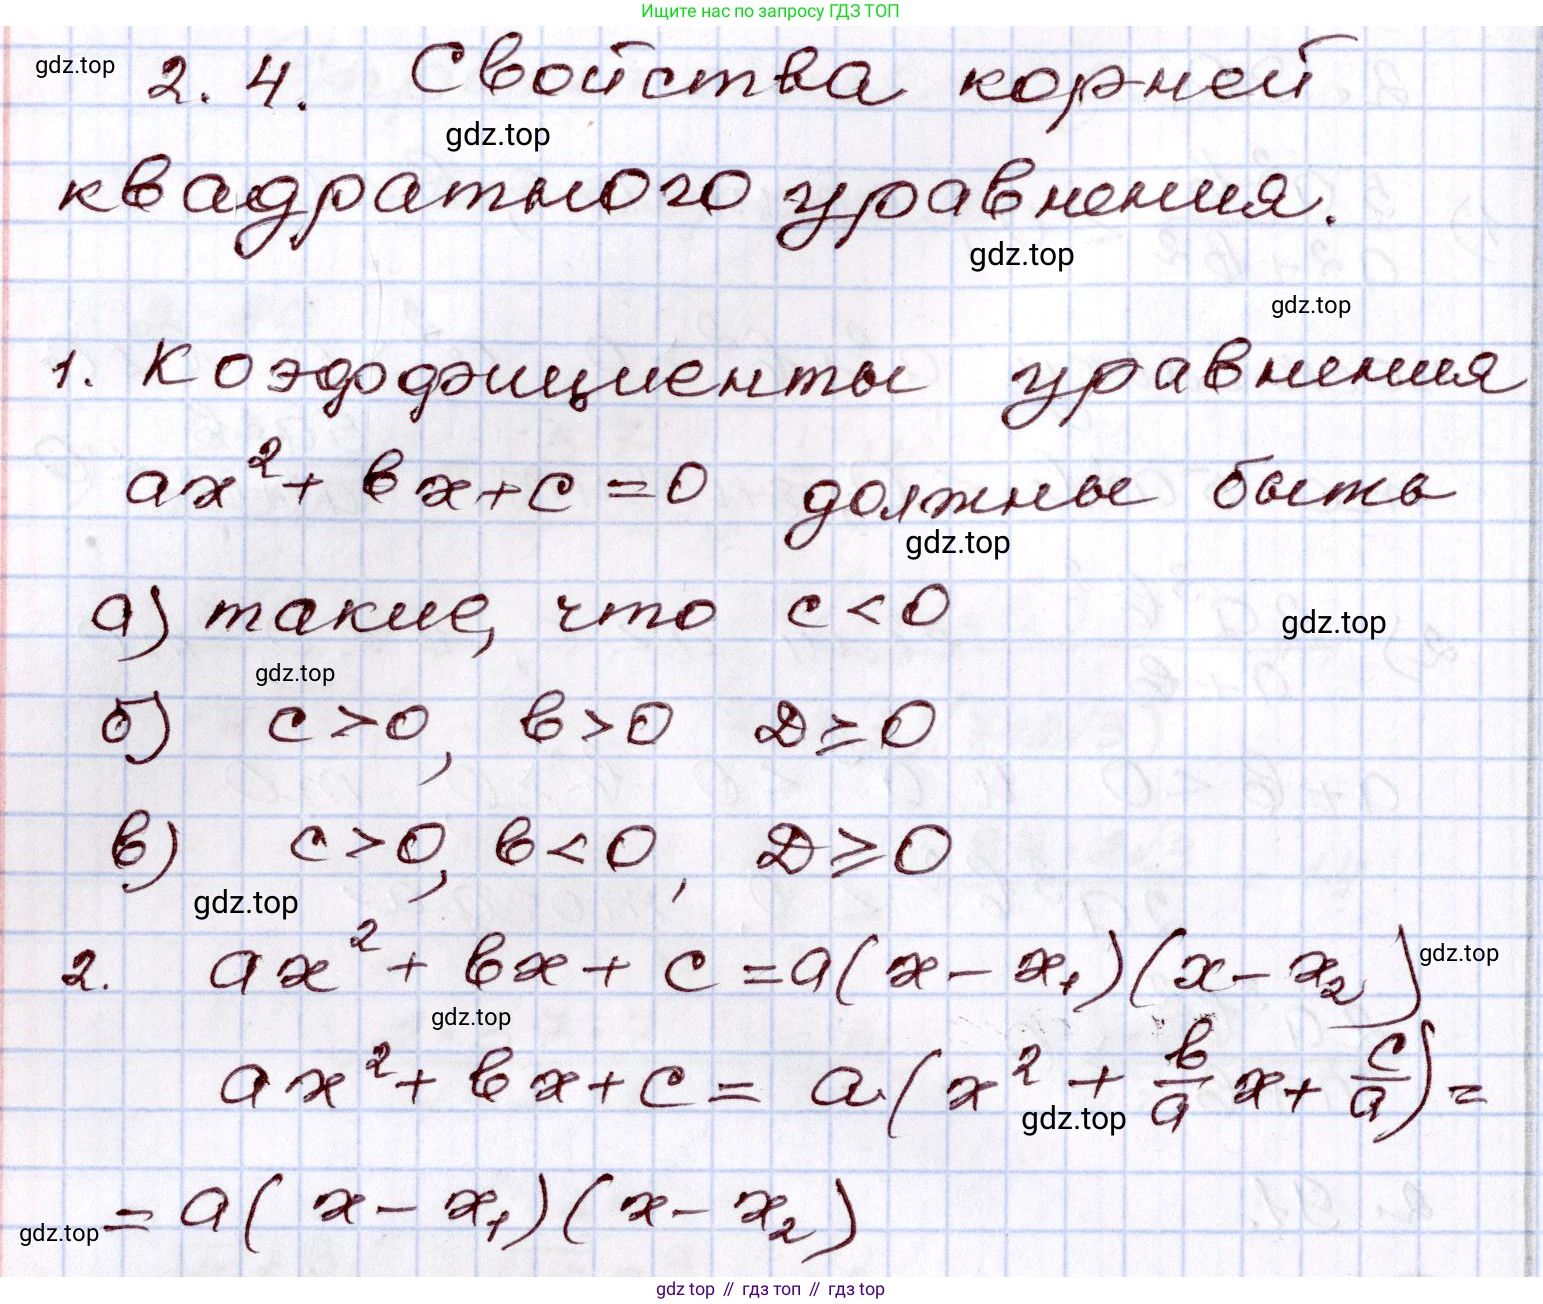 Ищите нас по запросу ГДЗ ТОП
gdz.top
2.4. Свойства корней
gdz.top
квадратного уравнения.
gdz.top
gdz.top
1. Коэффициенты уравнения
ax² + bx + c = 0 должны быть
gdz.top
а) такие, что c < 0
gdz.top
gdz.top
б) c > 0, b > 0 D ≥ 0
в) c > 0, b < 0, D ≥ 0
gdz.top
2. ax² + bx + c = a(x - x₁)(x - x₂)
gdz.top
gdz.top
ax² + bx + c = a·(x² + b/a x + c/a) =
gdz.top
= a(x - x₁)(x - x₂)
gdz.top
gdz top // гдз топ // gdz top